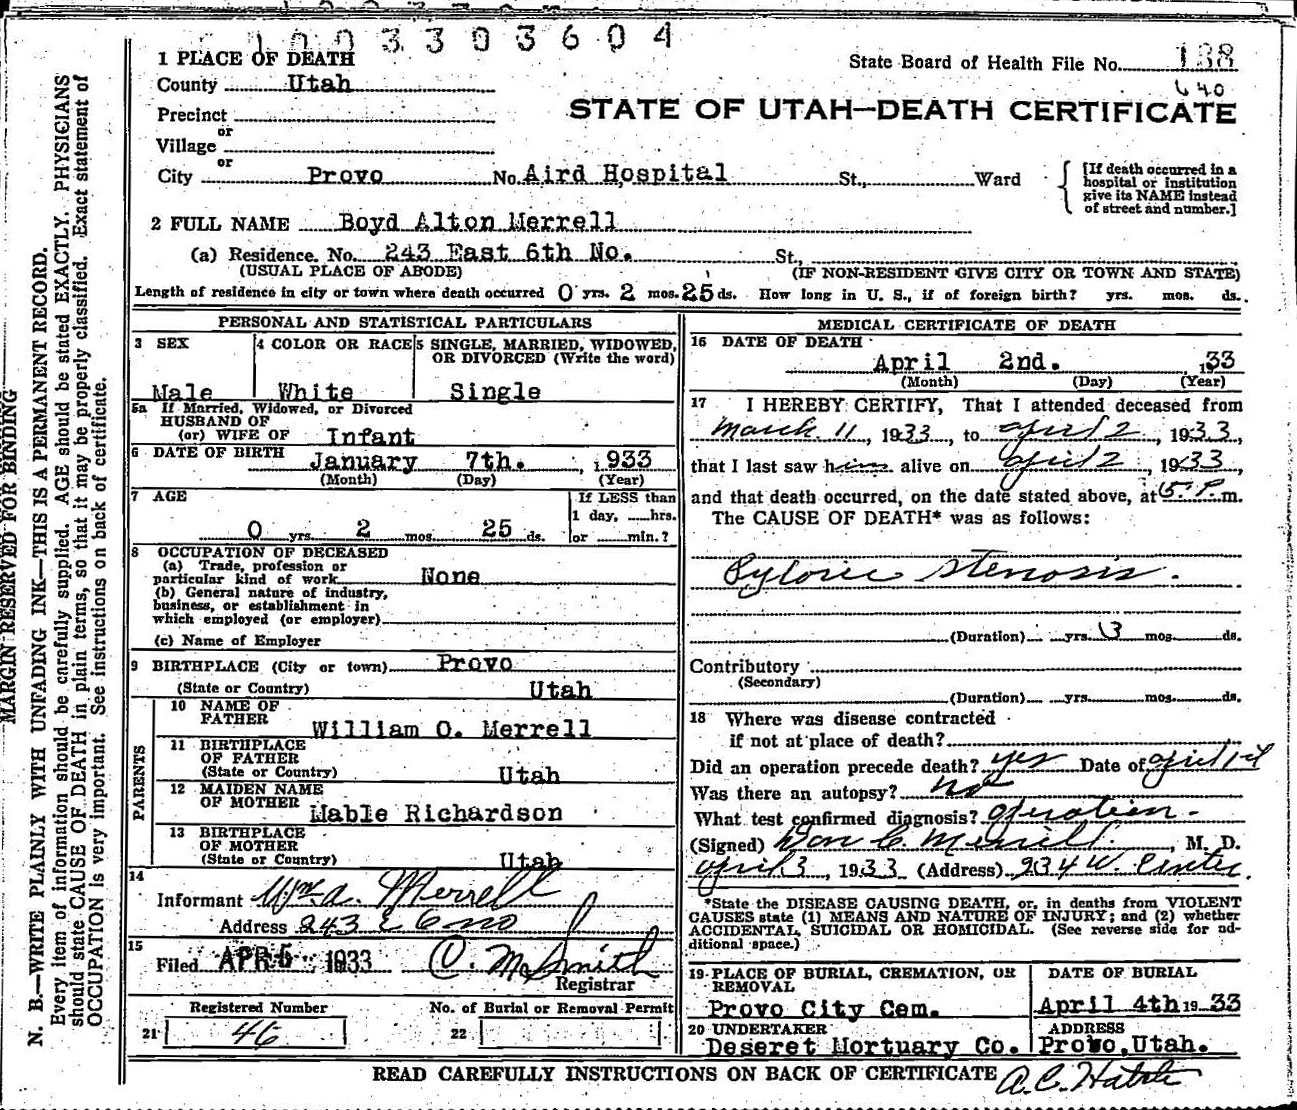 1003303604
1 PLACE OF DEATH
State Board of Health File No. 138
County Utah
640
STATE OF UTAH—DEATH CERTIFICATE
Precinct
or
Village
or
City Provo No. Aird Hospital St., Ward
[If death occurred in a hospital or institution give its NAME instead of street and number.]
2 FULL NAME Boyd Alton Merrell
(a) Residence. No. 243 East 6th No. St.,
(USUAL PLACE OF ABODE) (IF NON-RESIDENT GIVE CITY OR TOWN AND STATE)
Length of residence in city or town where death occurred 0 yrs. 2 mos. 25 ds. How long in U. S., if of foreign birth? yrs. mos. ds.
PERSONAL AND STATISTICAL PARTICULARS
3 SEX 4 COLOR OR RACE 5 SINGLE, MARRIED, WIDOWED,
OR DIVORCED (Write the word)
Male White Single
5a If Married, Widowed, or Divorced
HUSBAND OF
(or) WIFE OF Infant
6 DATE OF BIRTH January 7th. , 1933
(Month) (Day) (Year)
7 AGE If LESS than
1 day, hrs.
0 yrs. 2 mos. 25 ds. or min.?
8 OCCUPATION OF DECEASED
(a) Trade, profession or
particular kind of work None
(b) General nature of industry,
business, or establishment in
which employed (or employer)
(c) Name of Employer
9 BIRTHPLACE (City or town) Provo
(State or Country) Utah
PARENTS
10 NAME OF
FATHER William O. Merrell
11 BIRTHPLACE
OF FATHER
(State or Country) Utah
12 MAIDEN NAME
OF MOTHER Mable Richardson
13 BIRTHPLACE
OF MOTHER
(State or Country) Utah
14
Informant Wm. Merrell
Address 243 E 6 no
15
Filed APR 5 1933 Smith
Registrar
Registered Number No. of Burial or Removal Permit
21 46 22
MEDICAL CERTIFICATE OF DEATH
16 DATE OF DEATH
April 2nd. , 1933
(Month) (Day) (Year)
17 I HEREBY CERTIFY, That I attended deceased from
March 11, 1933, to april 2, 1933,
that I last saw him alive on april 2, 1933,
and that death occurred, on the date stated above, at 5. P. m.
The CAUSE OF DEATH* was as follows:
Pyloric stenosis.
(Duration) yrs. 3 mos. ds.
Contributory
(Secondary)
(Duration) yrs. mos. ds.
18 Where was disease contracted
if not at place of death?
Did an operation precede death? yes Date of april 1st
Was there an autopsy? no
What test confirmed diagnosis? operation.
(Signed) Don C. Merrill, M. D.
april 3, 1933 (Address) 234 W. Center.
*State the DISEASE CAUSING DEATH, or, in deaths from VIOLENT
CAUSES state (1) MEANS AND NATURE OF INJURY; and (2) whether
ACCIDENTAL, SUICIDAL OR HOMICIDAL. (See reverse side for ad-
ditional space.)
19 PLACE OF BURIAL, CREMATION, OR
REMOVAL DATE OF BURIAL
Provo City Cem. April 4th 1933
20 UNDERTAKER ADDRESS
Deseret Mortuary Co. Provo, Utah.
READ CAREFULLY INSTRUCTIONS ON BACK OF CERTIFICATE
MARGIN RESERVED FOR BINDING
N. B.—WRITE PLAINLY WITH UNFADING INK—THIS IS A PERMANENT RECORD.
Every item of information should be carefully supplied. AGE should be stated EXACTLY. PHYSICIANS
should state CAUSE OF DEATH in plain terms, so that it may be properly classified. Exact statement of
OCCUPATION is very important. See instructions on back of certificate.